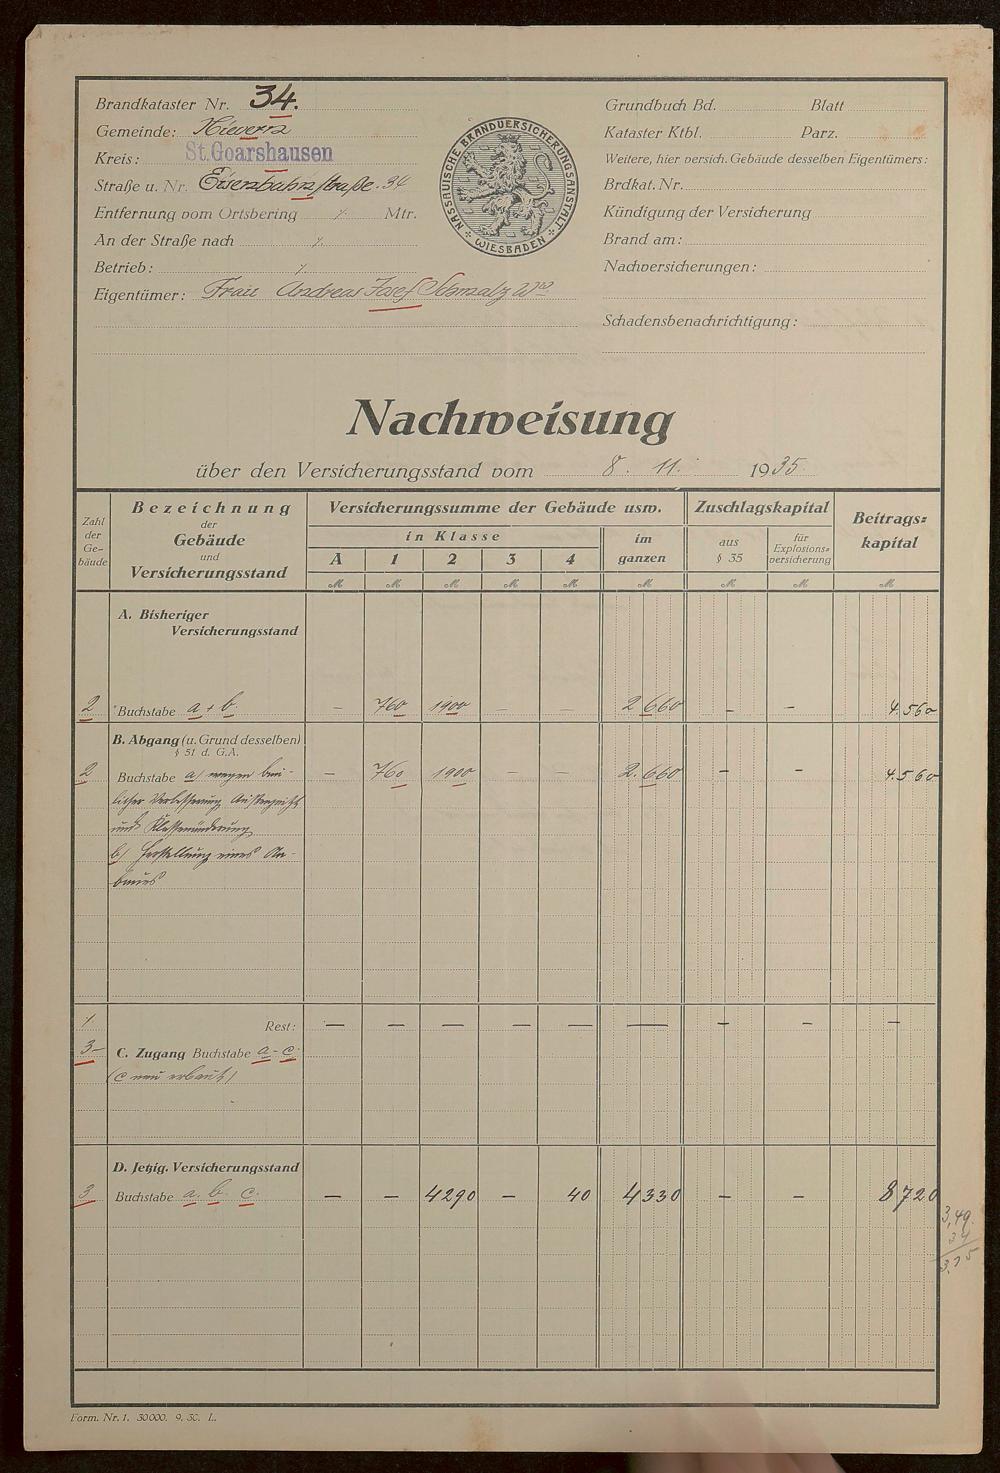 Brandkataster Nr. 34.
Gemeinde: Nievern
Kreis: St. Goarshausen
Straße u. Nr. Eisenbahnstraße 34
Entfernung vom Ortsbering ./. Mtr.
An der Straße nach ./.
Betrieb: ./.
Eigentümer: Frau Andreas Josef Schmalz Wwe
NASSAUISCHE BRANDVERSICHERUNGSANSTALT
WIESBADEN
Grundbuch Bd. Blatt
Kataster Ktbl. Parz.
Weitere, hier versich. Gebäude desselben Eigentümers:
Brdkat. Nr.
Kündigung der Versicherung
Brand am:
Nachversicherungen:
Schadensbenachrichtigung:
Nachweisung
über den Versicherungsstand vom 8. 11. 1935
Zahl der Ge-bäude
Bezeichnung der Gebäude und Versicherungsstand
Versicherungssumme der Gebäude usw.
in Klasse
A 1 2 3 4
im ganzen
Zuschlagskapital
aus § 35
für Explosions-versicherung
Beitrags-kapital
ℳ ℳ ℳ ℳ ℳ ℳ ℳ ℳ ℳ
A. Bisheriger
Versicherungsstand
2 Buchstabe a + b. – 760 1900 – – 2 660 – – 4.560
B. Abgang (u. Grund desselben)
§ 51 d. G.A.
2 Buchstabe a) wegen bau- – 760 1900 – – 2.660 – – 4.560
licher Verbesserung,
und Klassenänderung
b) Herstellung eines An-
baues
/ Rest: – – – – – – – – –
3 – C. Zugang Buchstabe a – c.
(c neu erbaut)
D. Jetzig. Versicherungsstand
3 Buchstabe a. b. c. – – 4290 – 40 4330 – – 8720
3,49.
3,75
Form. Nr. 1. 30000. 9. 30. L.